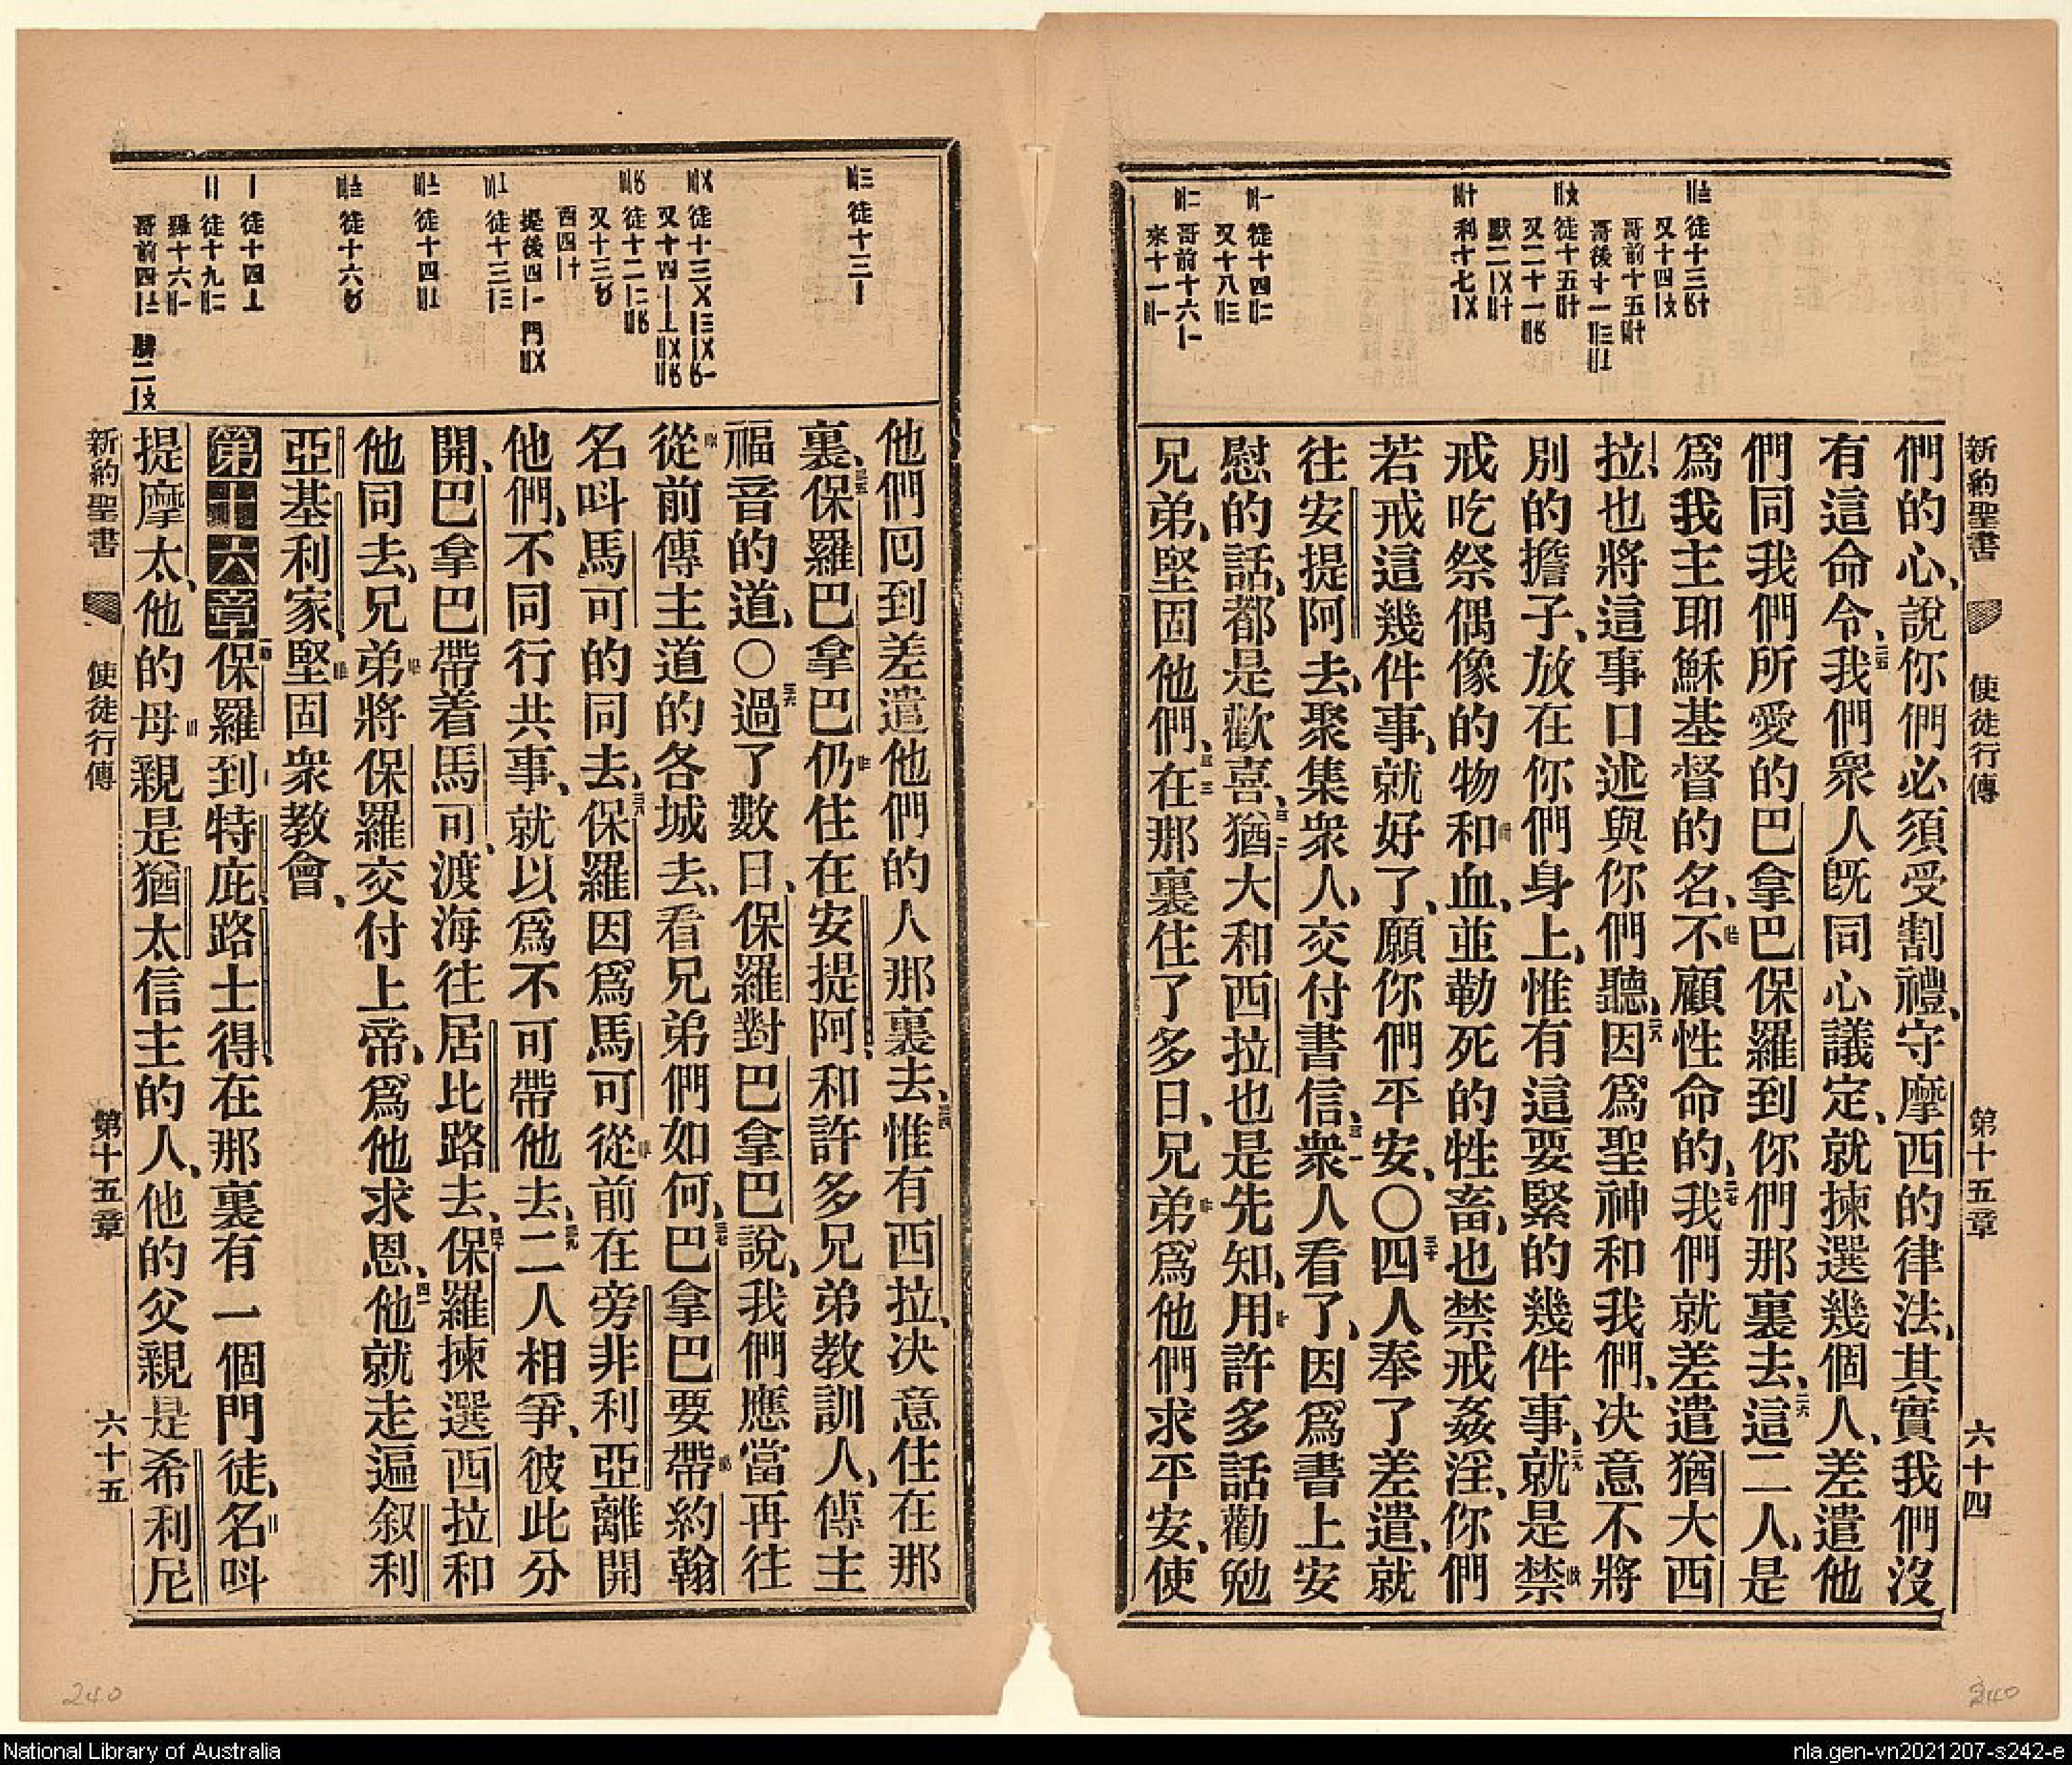 新約聖書 使徒行傳 第十五章 六十四
們的心、說你們必須受割禮、守摩西的律法、其實我們沒
有這命令、我們衆人旣同心議定、就揀選幾個人、差遣他
們同我們所愛的巴拿巴保羅到你們那裏去、這二人、是
爲我主耶穌基督的名、不顧性命的、我們就差遣猶大西
拉、也將這事口述與你們聽、因爲聖神和我們、决意不將
別的擔子、放在你們身上、惟有這要緊的幾件事、就是禁
戒吃祭偶像的物和血、並勒死的牲畜、也禁戒姦淫、你們
若戒這幾件事、就好了、願你們平安、○四人奉了差遣、就
往安提阿去、聚集衆人、交付書信、衆人看了、因爲書上安
慰的話、都是歡喜、猶大和西拉也是先知、用許多話勸勉
兄弟、堅固他們、在那裏住了多日、兄弟爲他們求平安、使
他們囘到差遣他們的人那裏去、惟有西拉、决意住在那
裏、保羅巴拿巴仍住在安提阿、和許多兄弟教訓人、傳主
福音的道、○過了數日、保羅對巴拿巴說、我們應當再往
從前傳主道的各城去、看兄弟們如何、巴拿巴要帶約翰
名呌馬可的同去、保羅因爲馬可從前在旁非利亞離開
他們、不同行共事、就以爲不可帶他去、二人相爭、彼此分
開、巴拿巴帶着馬可、渡海往居比路去、保羅揀選西拉和
他同去、兄弟將保羅交付上帝、爲他求恩、他就走遍叙利
亞基利家、堅固衆教會、
第十六章 保羅到特庇、路士得、在那裏有一個門徒、名呌
提摩太、他的母親是猶太信主的人、他的父親是希利尼
新約聖書 使徒行傳 第十五章 六十五
240
240
National Library of Australia
nla.gen-vn2021207-s242-e